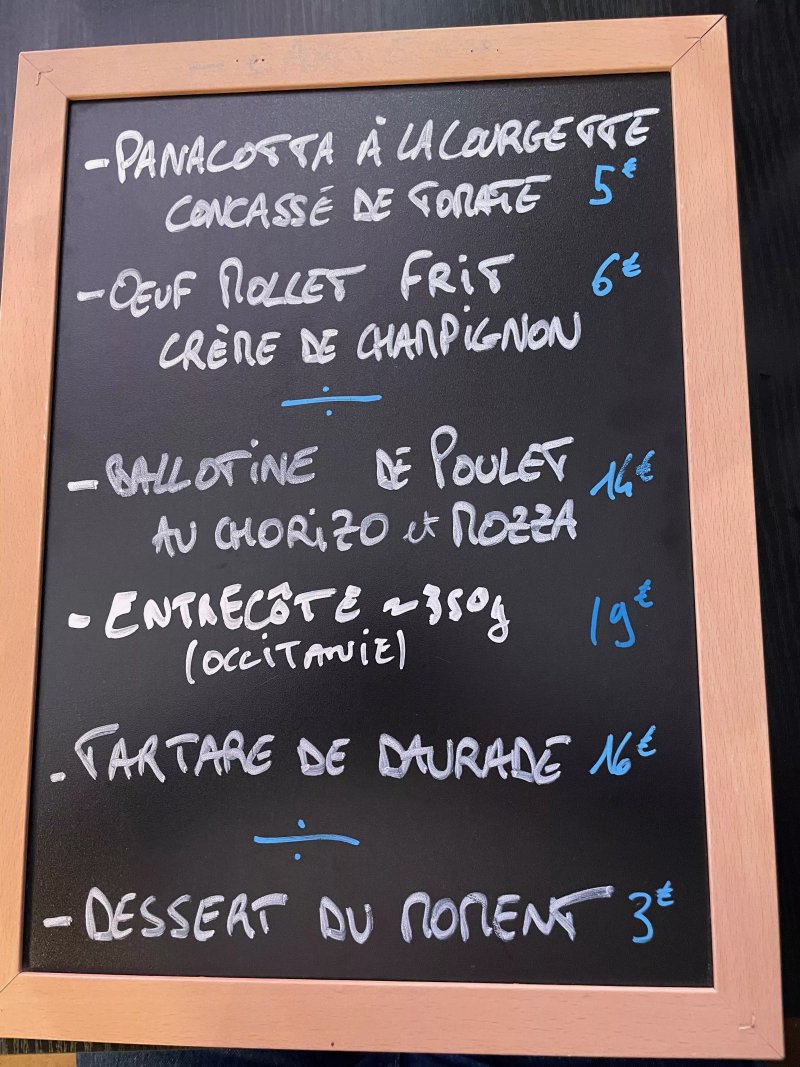 - PANACOTTA À LA COURGETTE
CONCASSÉ DE TOMATE 5€
- OEUF MOLLET FRIT 6€
CRÈME DE CHAMPIGNON
- BALLOTINE DE POULET 14€
AU CHORIZO et MOZZA
- ENTRECÔTE ~350g 19€
(OCCITANIE)
- TARTARE DE DAURADE 16€
- DESSERT DU MOMENT 3€